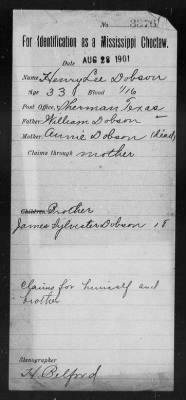 No. 3376
For Identification as a Mississippi Choctaw.
AUG 28 1901
Name Henry Lee Dobson
Age 33 Blood 1/16
Post Office, Sherman Texas
Father, William Dobson -
Mother, Annie Dobson (dead)
Claims through mother
Children, Brother
James Sylvester Dobson 18
Claims for himself and
brother
Stenographer
H. Belford